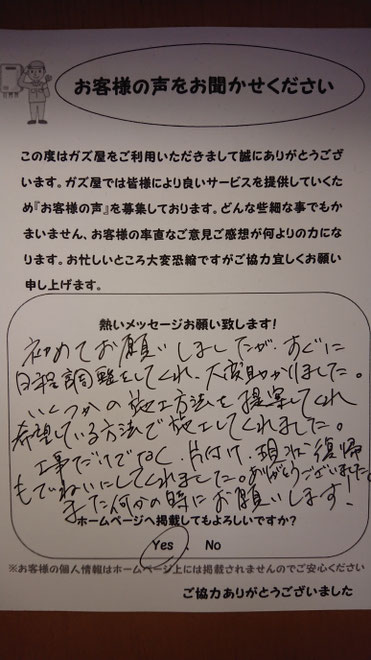 お客様の声をお聞かせください
この度はガズ屋をご利用いただきまして誠にありがとうござ
います。ガズ屋では皆様により良いサービスを提供していくた
め『お客様の声』を募集しております。どんな些細な事でもか
まいません、お客様の率直なご意見ご感想が何よりの力にな
ります。お忙しいところ大変恐縮ですがご協力宜しくお願い
申し上げます。
熱いメッセージお願い致します!
初めてお願いしましたが、すぐに
日程調整をしてくれ、大変助かりました。
いくつかの施工方法を提案してくれ
希望している方法で施工してくれました。
工事だけでなく、片付け・現状復帰
もていねいにしてくれました。ありがとうございました。
また何かの時にお願いします!
ホームページへ掲載してもよろしいですか?
Yes . No
※お客様の個人情報はホームページ上には掲載されませんのでご安心ください
ご協力ありがとうございました